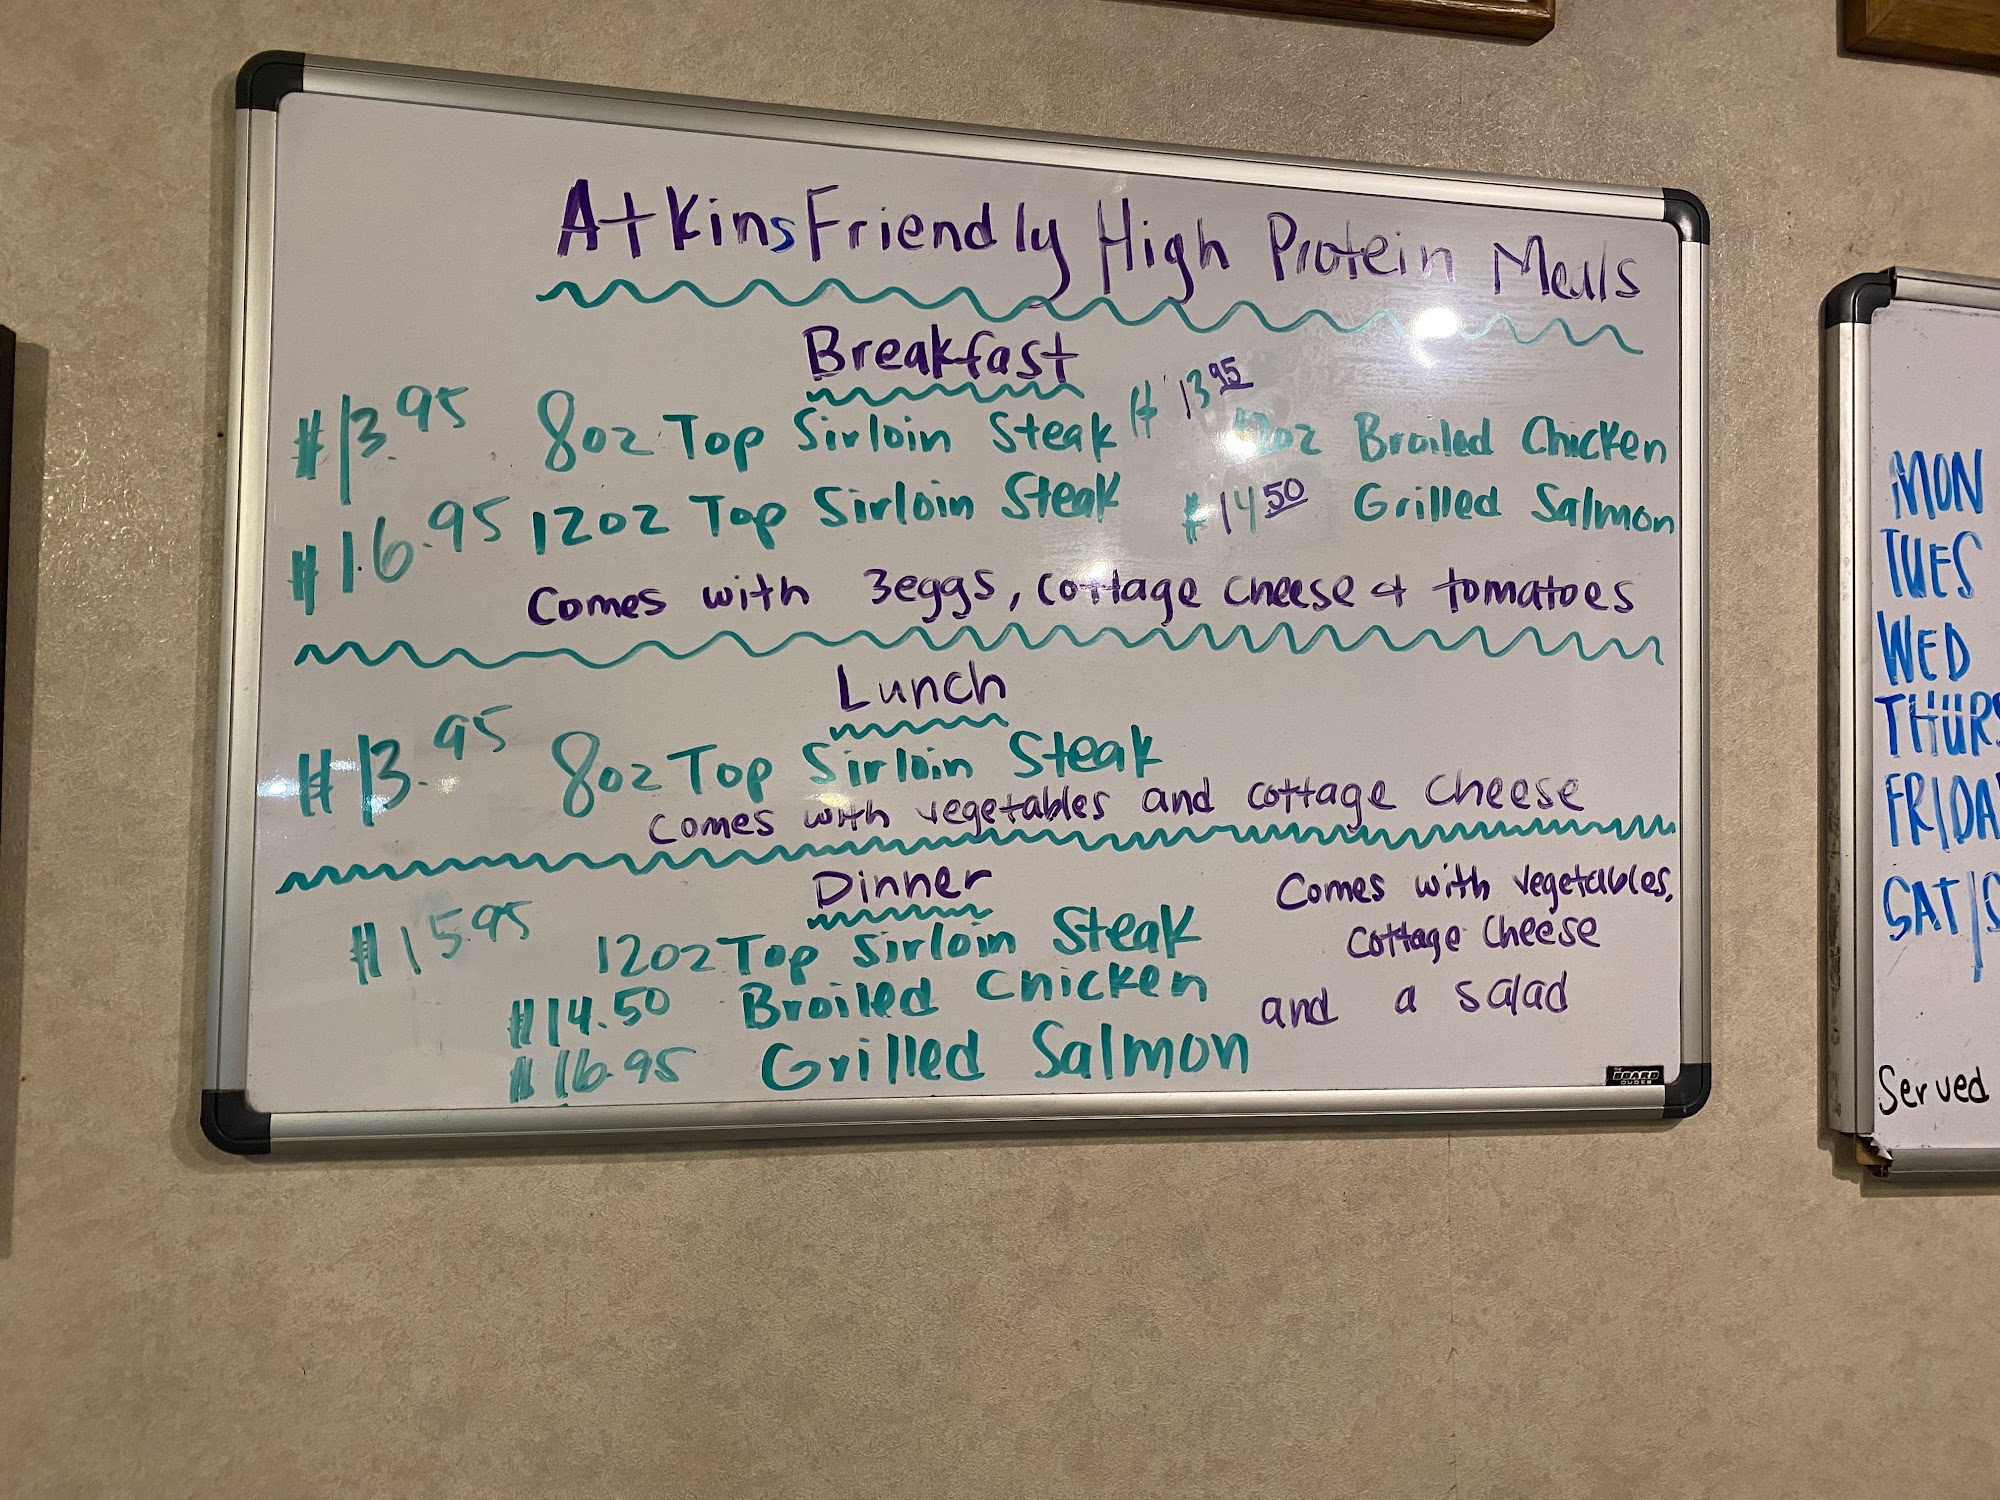 Atkins Friendly High Protein Meals
Breakfast
$13.95 8oz Top Sirloin Steak $13.95 Broiled Chicken
$16.95 12oz Top Sirloin Steak $14.50 Grilled Salmon
Comes with 3eggs, cottage cheese & tomatoes
Lunch
$13.95 8oz Top Sirloin Steak
Comes with vegetables and cottage cheese
Dinner
$15.95 12oz Top Sirloin Steak
$14.50 Broiled Chicken
$16.95 Grilled Salmon
Comes with vegetables,
cottage cheese
and a salad
THE BOARD DUDES
MON
TUES
WED
THURS
FRIDA
SAT/S
Served